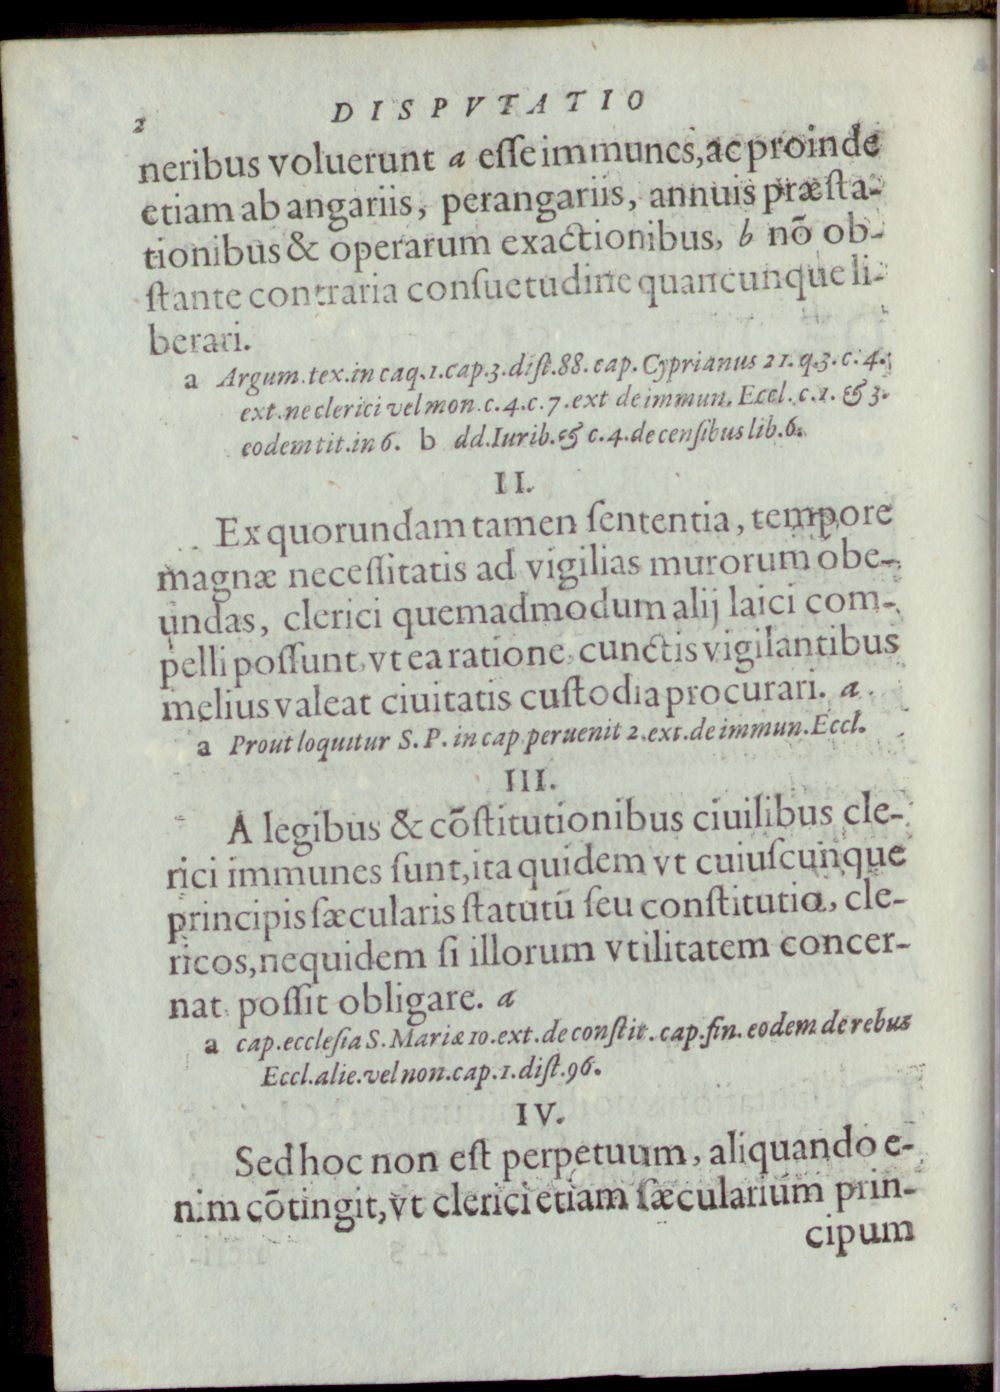 2
DISPVTATIO
neribus voluerunt a eſſe immunes, ac proinde
etiam ab angariis, perangariis, annuis præſta-
tionibus & operarum exactionibus, b nō ob-
ſtante contraria conſuetudine quancunque li-
berari.
a Argum. tex. in caq. 1. cap. 3. diſt. 88. cap. Cyprianus 21. q. 3. c. 4.
ext. ne clerici vel mon. c. 4. c. 7. ext de immun. Eccl. c. 1. & 3.
eodem tit. in 6. b dd. Iurib. & c. 4. de cenſibus lib. 6.
II.
Ex quorundam tamen ſententia, tempore
magnæ neceſſitatis ad vigilias murorum obe-
undas, clerici quemadmodum alij laici com-
pelli poſſunt, vt ea ratione cunctis vigilantibus
melius valeat ciuitatis cuſtodia procurari. a
a Prout loquitur S. P. in cap peruenit 2. ext. de immun. Eccl.
III.
A legibus & cōſtitutionibus ciuilibus cle-
rici immunes ſunt, ita quidem vt cuiuſcunque
principis ſæcularis ſtatutū ſeu conſtitutio, cle-
ricos, nequidem ſi illorum vtilitatem concer-
nat poſſit obligare. a
a cap. eccleſia S. Mariæ 10. ext. de conſtit. cap. fin. eodem de rebus
Eccl. alie. vel non. cap. 1. diſt. 96.
IV.
Sed hoc non eſt perpetuum, aliquando e-
nim cōtingit, vt clerici etiam ſæcularium prin-
cipum